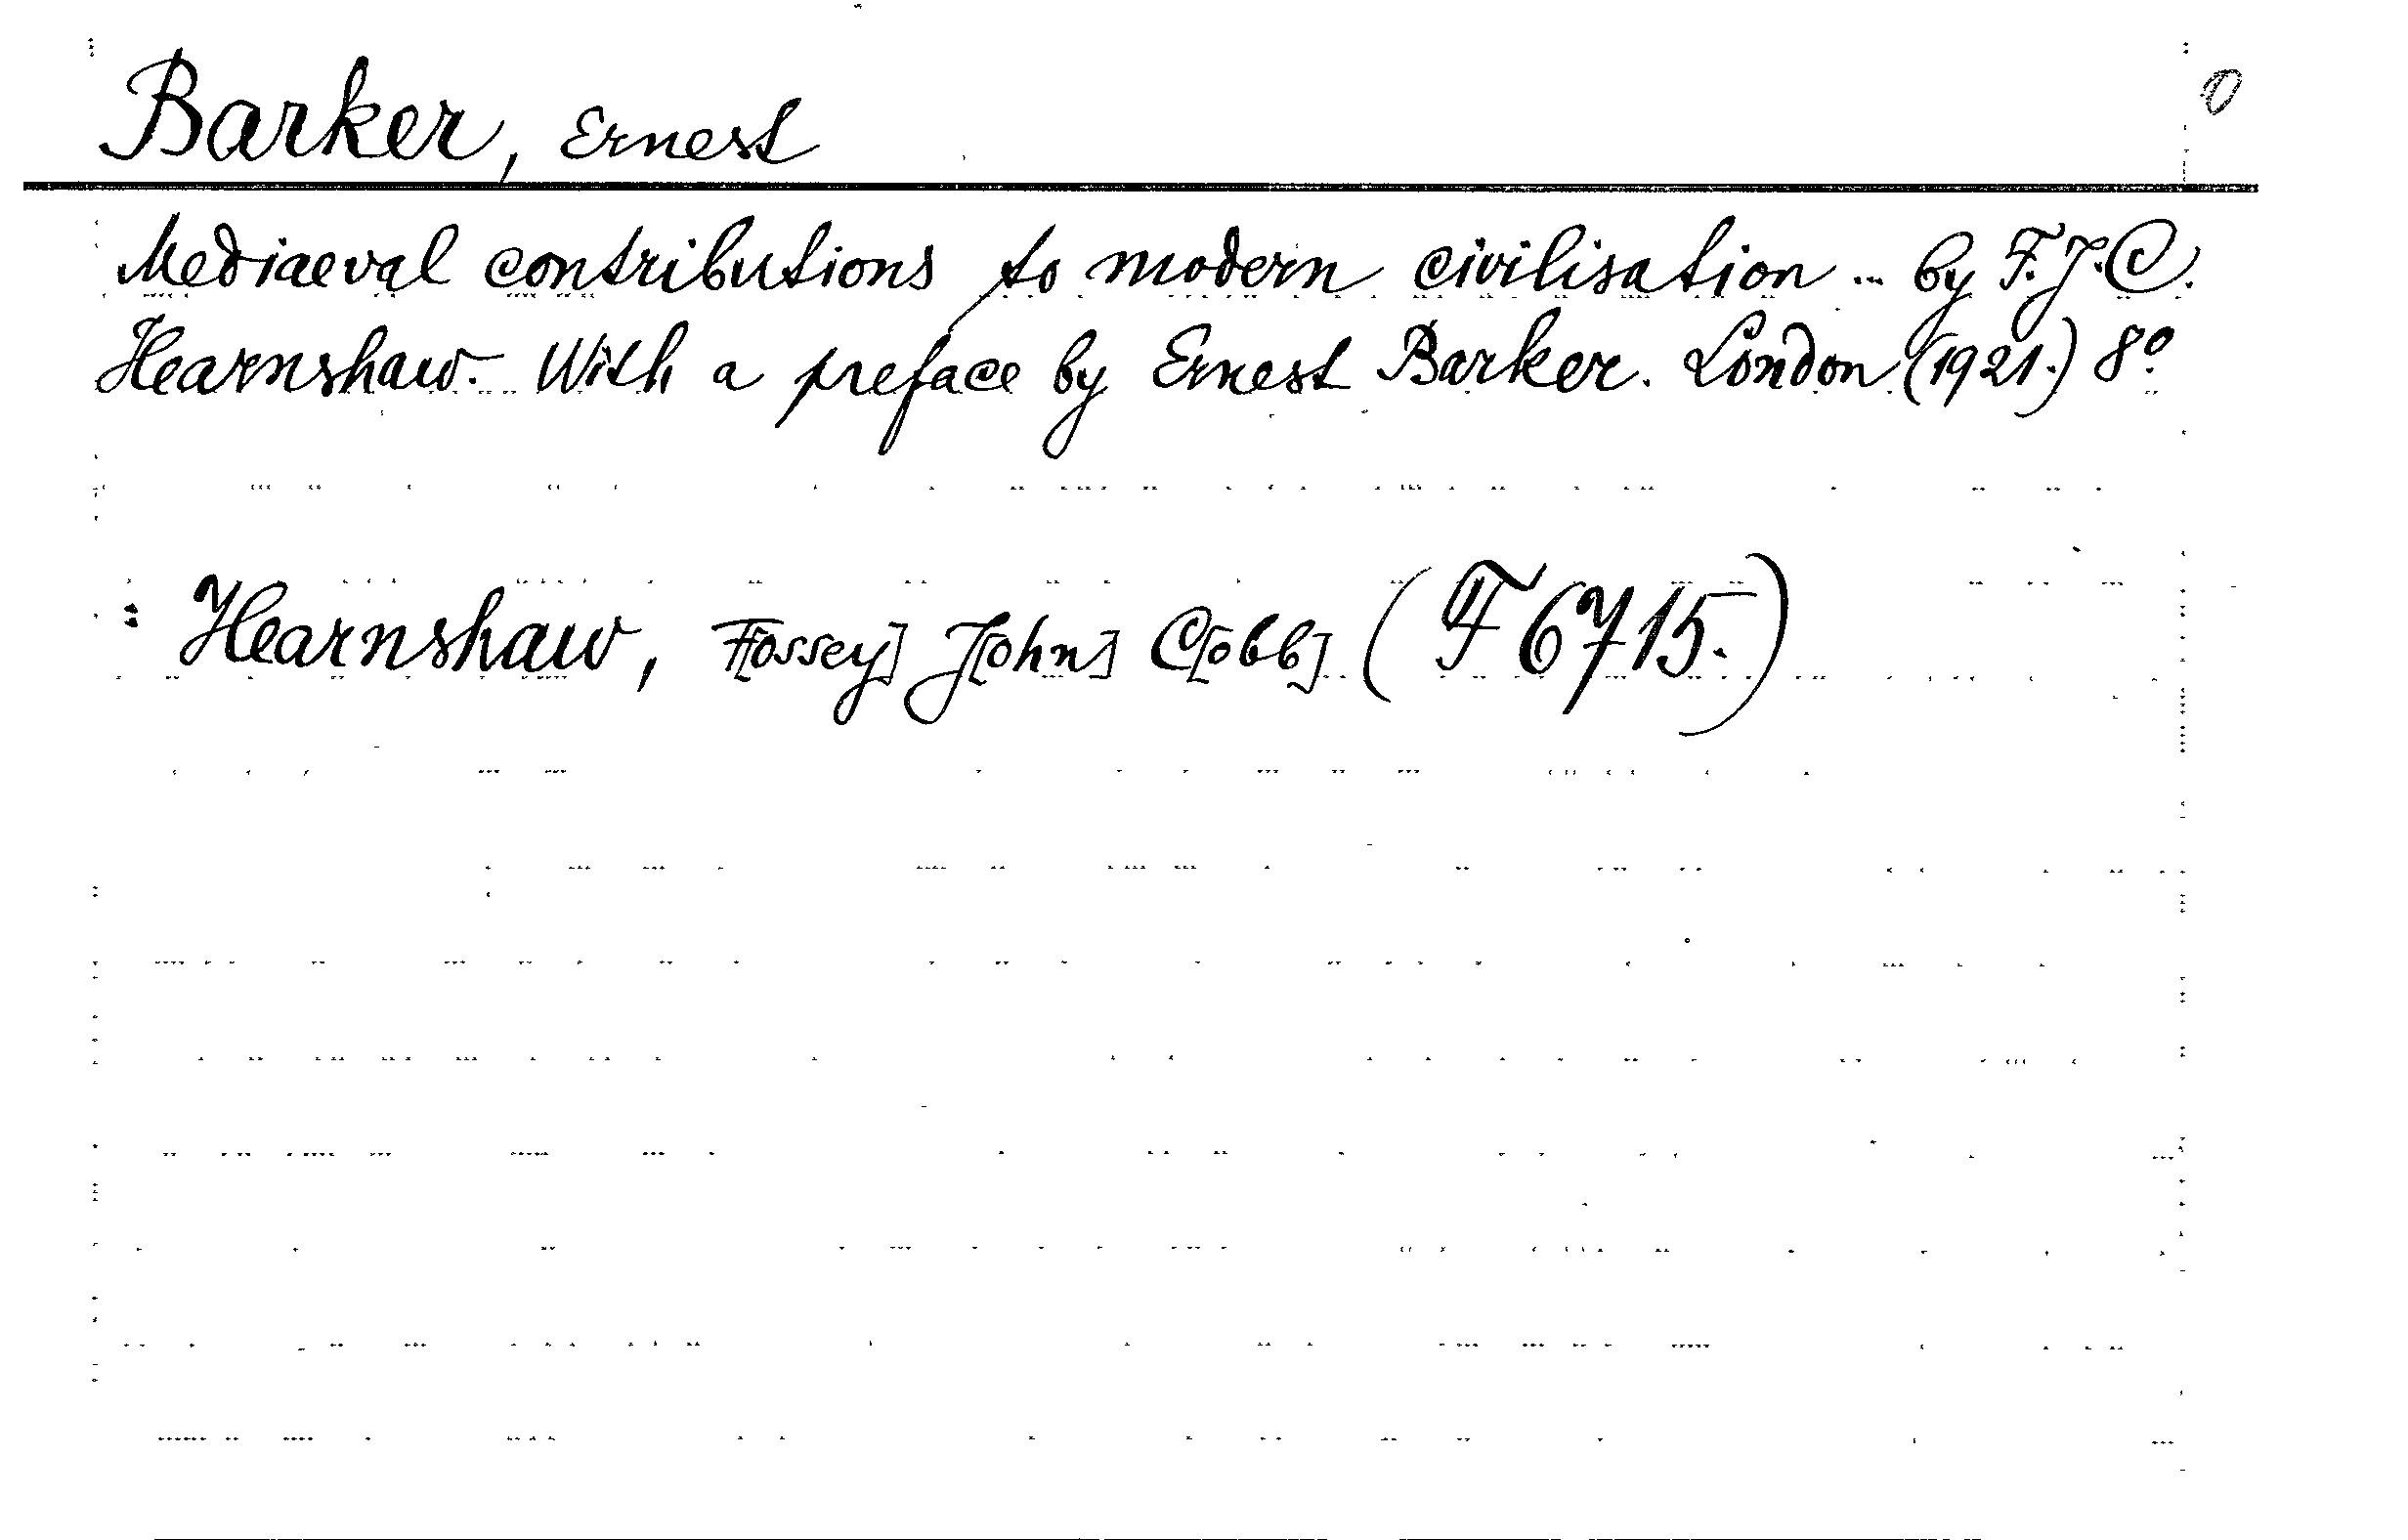 Barker, Ernest
Mediaeval contributions to modern civilisation ... by F.J.C.
Hearnshaw. With a preface by Ernest Barker. London (1921.) 8º
: Hearnshaw, F[ossey] J[ohn] C[obb] (F 6715.)